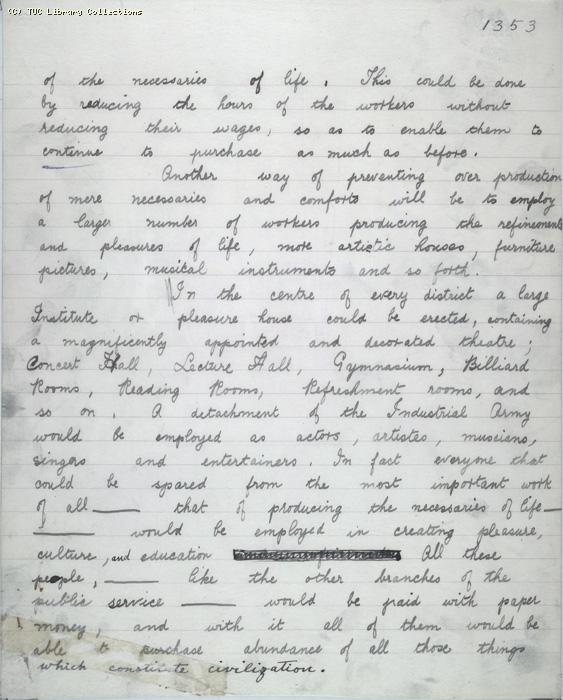 (C) TUC Library Collections
1353
of the necessaries of life. This could be done
by reducing the hours of the workers without
reducing their wages, so as to enable them to
continue to purchase as much as before.
Another way of preventing over production
of mere necessaries and comforts will be to employ
a larger number of workers producing the refinements
and pleasures of life, more artistic houses, furniture
pictures, musical instruments and so forth.
In the centre of every district a large
Institute or pleasure house could be erected, containing
a magnificently appointed and decorated theatre;
Concert Hall, Lecture Hall, Gymnasium, Billiard
Rooms, Reading Rooms, Refreshment rooms, and
so on. A detachment of the Industrial Army
would be employed as actors, artistes, musicians,
singers and entertainers. In fact everyone that
could be spared from the most important work
of all — that of producing the necessaries of life —
— would be employed in creating pleasure,
culture, and education All these
people, — like the other branches of the
public service — would be paid with paper
money, and with it all of them would be
able to purchase abundance of all those things
which constitute civilization.